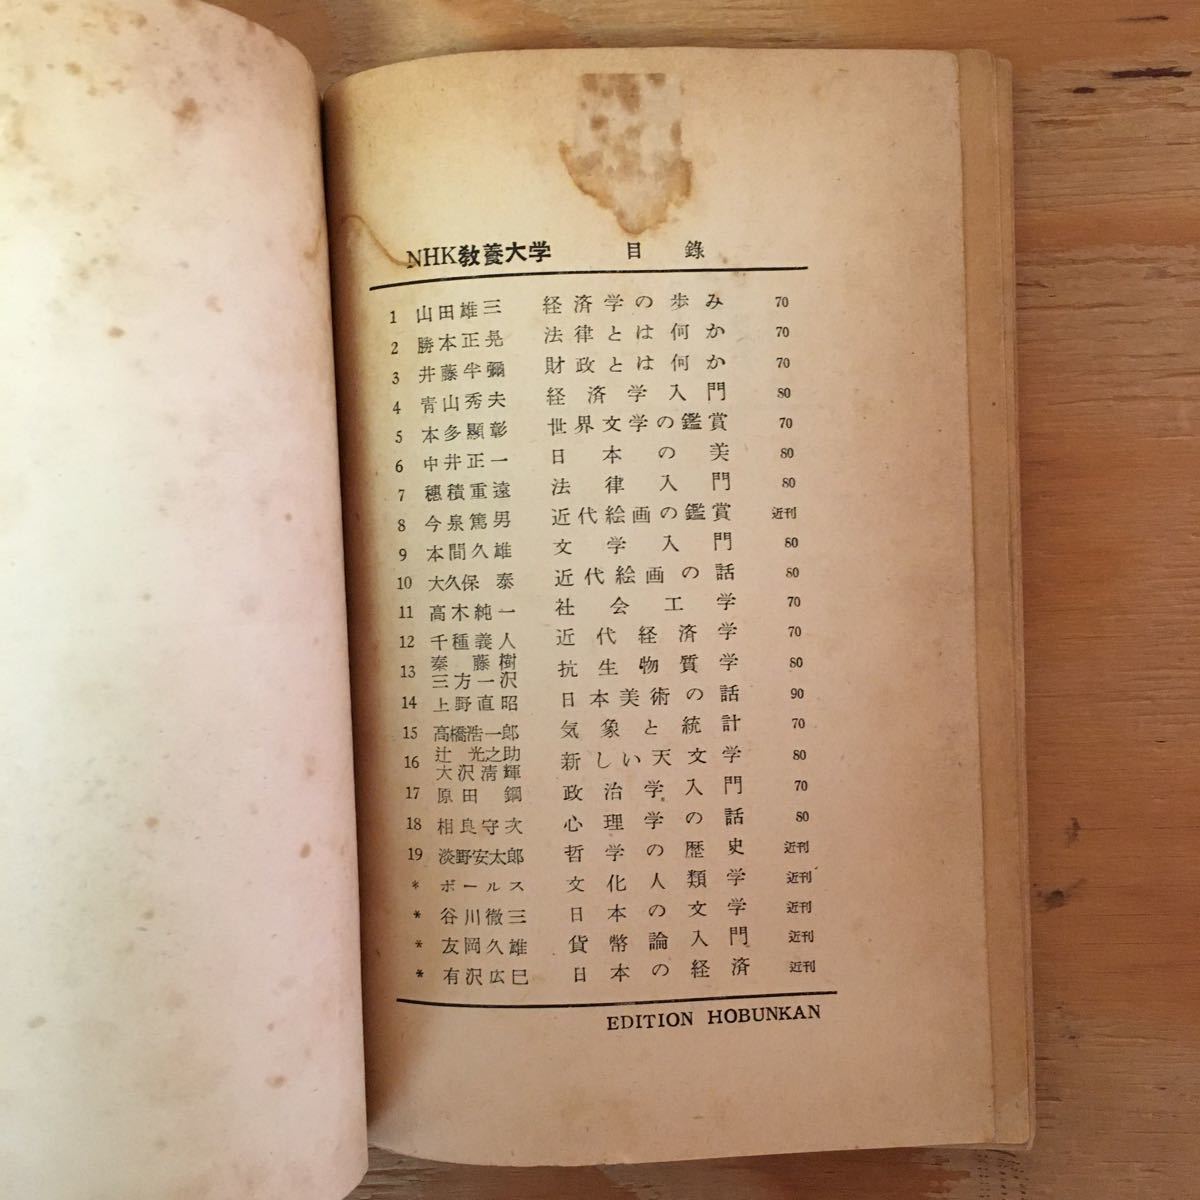 NHK教養大学 目錄
1 山田雄三 経済学の歩み 70
2 勝本正晃 法律とは何か 70
3 井藤半彌 財政とは何か 70
4 青山秀夫 経済学入門 80
5 本多顯彰 世界文学の鑑賞 70
6 中井正一 日本の美 80
7 穗積重遠 法律入門 80
8 今泉篤男 近代絵画の鑑賞 近刊
9 本間久雄 文学入門 80
10 大久保泰 近代絵画の話 80
11 高木純一 社会工学 70
12 千種義人 近代経済学 70
13 秦藤樹 三方一沢 抗生物質学 80
14 上野直昭 日本美術の話 90
15 高橋浩一郎 気象と統計 70
16 辻光之助 大沢清輝 新しい天文学 80
17 原田鋼 政治学入門 70
18 相良守次 心理学の話 80
19 淡野安太郎 哲学の歴史 近刊
* ボールス 文化人類学 近刊
* 谷川徹三 日本の文学 近刊
* 友岡久雄 貨幣論入門 近刊
* 有沢広巳 日本の経済 近刊
EDITION HOBUNKAN